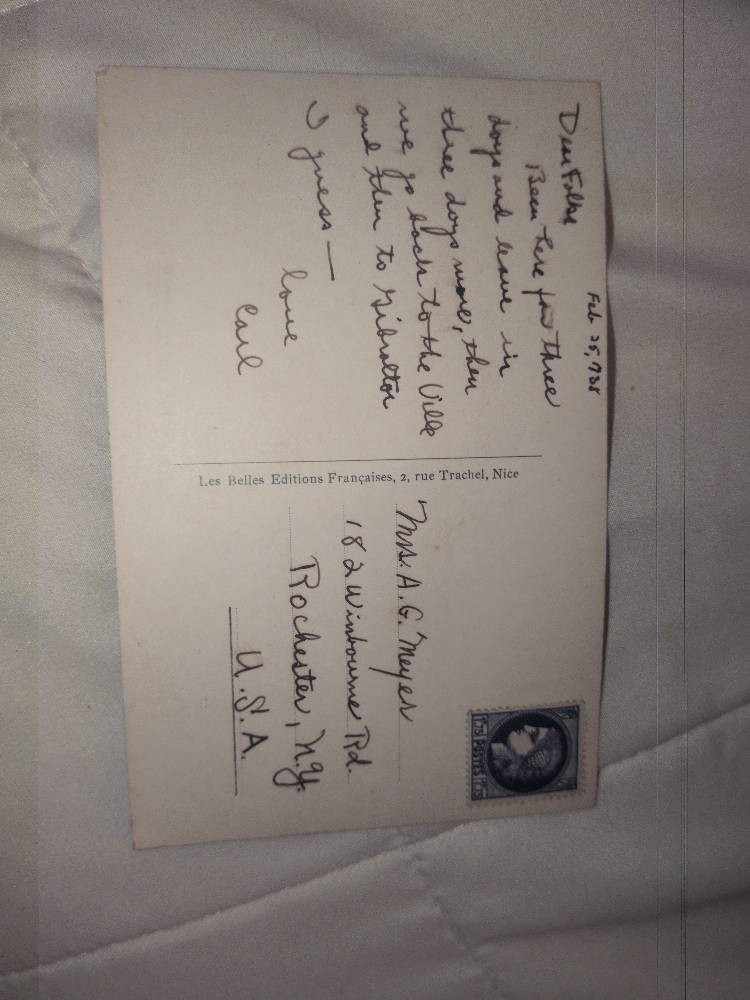 Feb 25, 938
Dear Folks
Been here for three
days and leave in
three days more, then
we go back to the Ville
and then to Gibraltar
I guess —
love
Carl
Les Belles Editions Françaises, 2, rue Trachel, Nice
Mrs. A. G. Meyer
182 Winbourne Rd.
Rochester, N.Y.
U.S.A.
1.75 POSTES 1.75